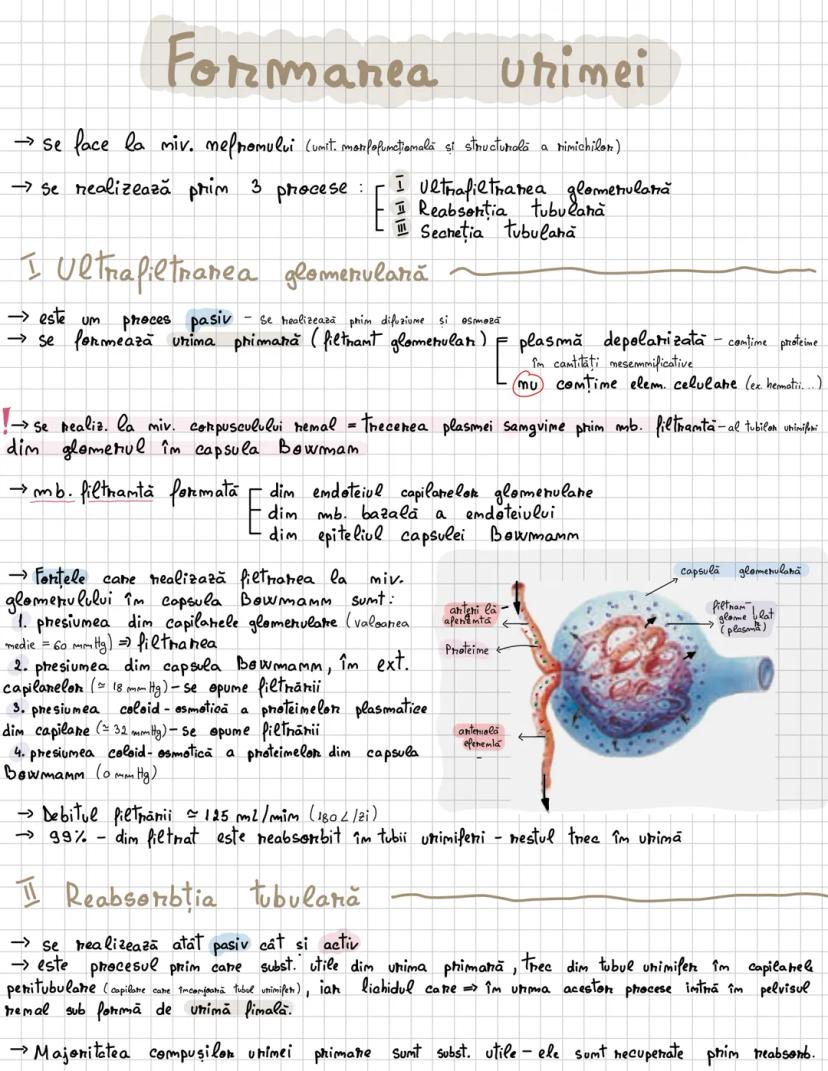 Formarea urinei
→ se face la niv. nefronului (unit. morfofuncțională și structurală a rinichilor)
→ se realizează prin 3 procese : I Ultrafiltrarea glomerulară
II Reabsorția tubulară
III Secreția tubulară
I Ultrafiltrarea glomerulară
→ este un proces pasiv - se realizează prin difuziune și osmoză
→ se formează urina primară (filtrant glomerular) = plasmă depolarizată - conține proteine
în cantități nesemnificative
nu conține elem. celulare (ex. hematii...)
! → se realiz. la niv. corpusculului renal = trecerea plasmei sangvine prin mb. filtrantă - al tubilor uriniferi
din glomerul în capsula Bowman
→ mb. filtrantă formată din endoteiul capilarelor glomerulare
din mb. bazală a endoteiului
din epiteliul capsulei Bowmann
→ Forțele care realizază filtrarea la niv.
glomerulului în capsula Bowmann sunt:
1. presiunea din capilarele glomerulare (valoarea
medie = 60 mmHg) ⇒ filtrarea
2. presiunea din capsula Bowmann, în ext.
capilarelor (≃ 18 mmHg) - se opune filtrării
3. presiunea coloid-osmotică a proteinelor plasmatice
din capilare (≃ 32 mmHg) - se opune filtrării
4. presiunea coloid-osmotică a proteinelor din capsula
Bowmann (0 mmHg)
capsulă glomerulară
arteri lă
aferentă
Proteine
filtran
glome ulat
(plasmă)
arteriolă
eferentă
→ Debitul filtrării ≃ 125 ml/min (180 L/zi)
→ 99% - din filtrat este reabsorbit în tubii uriniferi - restul trec în urină
II Reabsorbția tubulară
→ se realizează atât pasiv cât și activ
→ este procesul prin care subst. utile din urina primară, trec din tubul urinifer în capilarele
peritubulare (capilare care înconjoară tubul urinifer), iar lichidul care ⇒ în urma acestor procese intră în pelvisul
renal sub formă de urină finală.
→ Majoritatea compușilor urinei primare sunt subst. utile - ele sunt recuperate prin reabsorb.